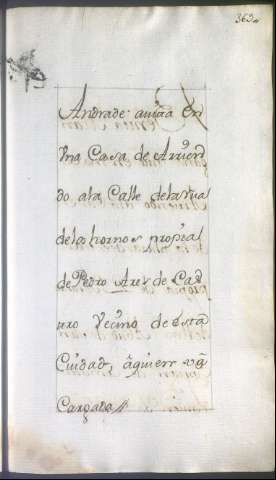 363
Andrade avita en
Vna Casa de Arrien
do a la Calle de la rua
de los hornos propia
de Pedro Arez de Cas
tro Vecino de esta
Ciudad, a quien vā
Cargada